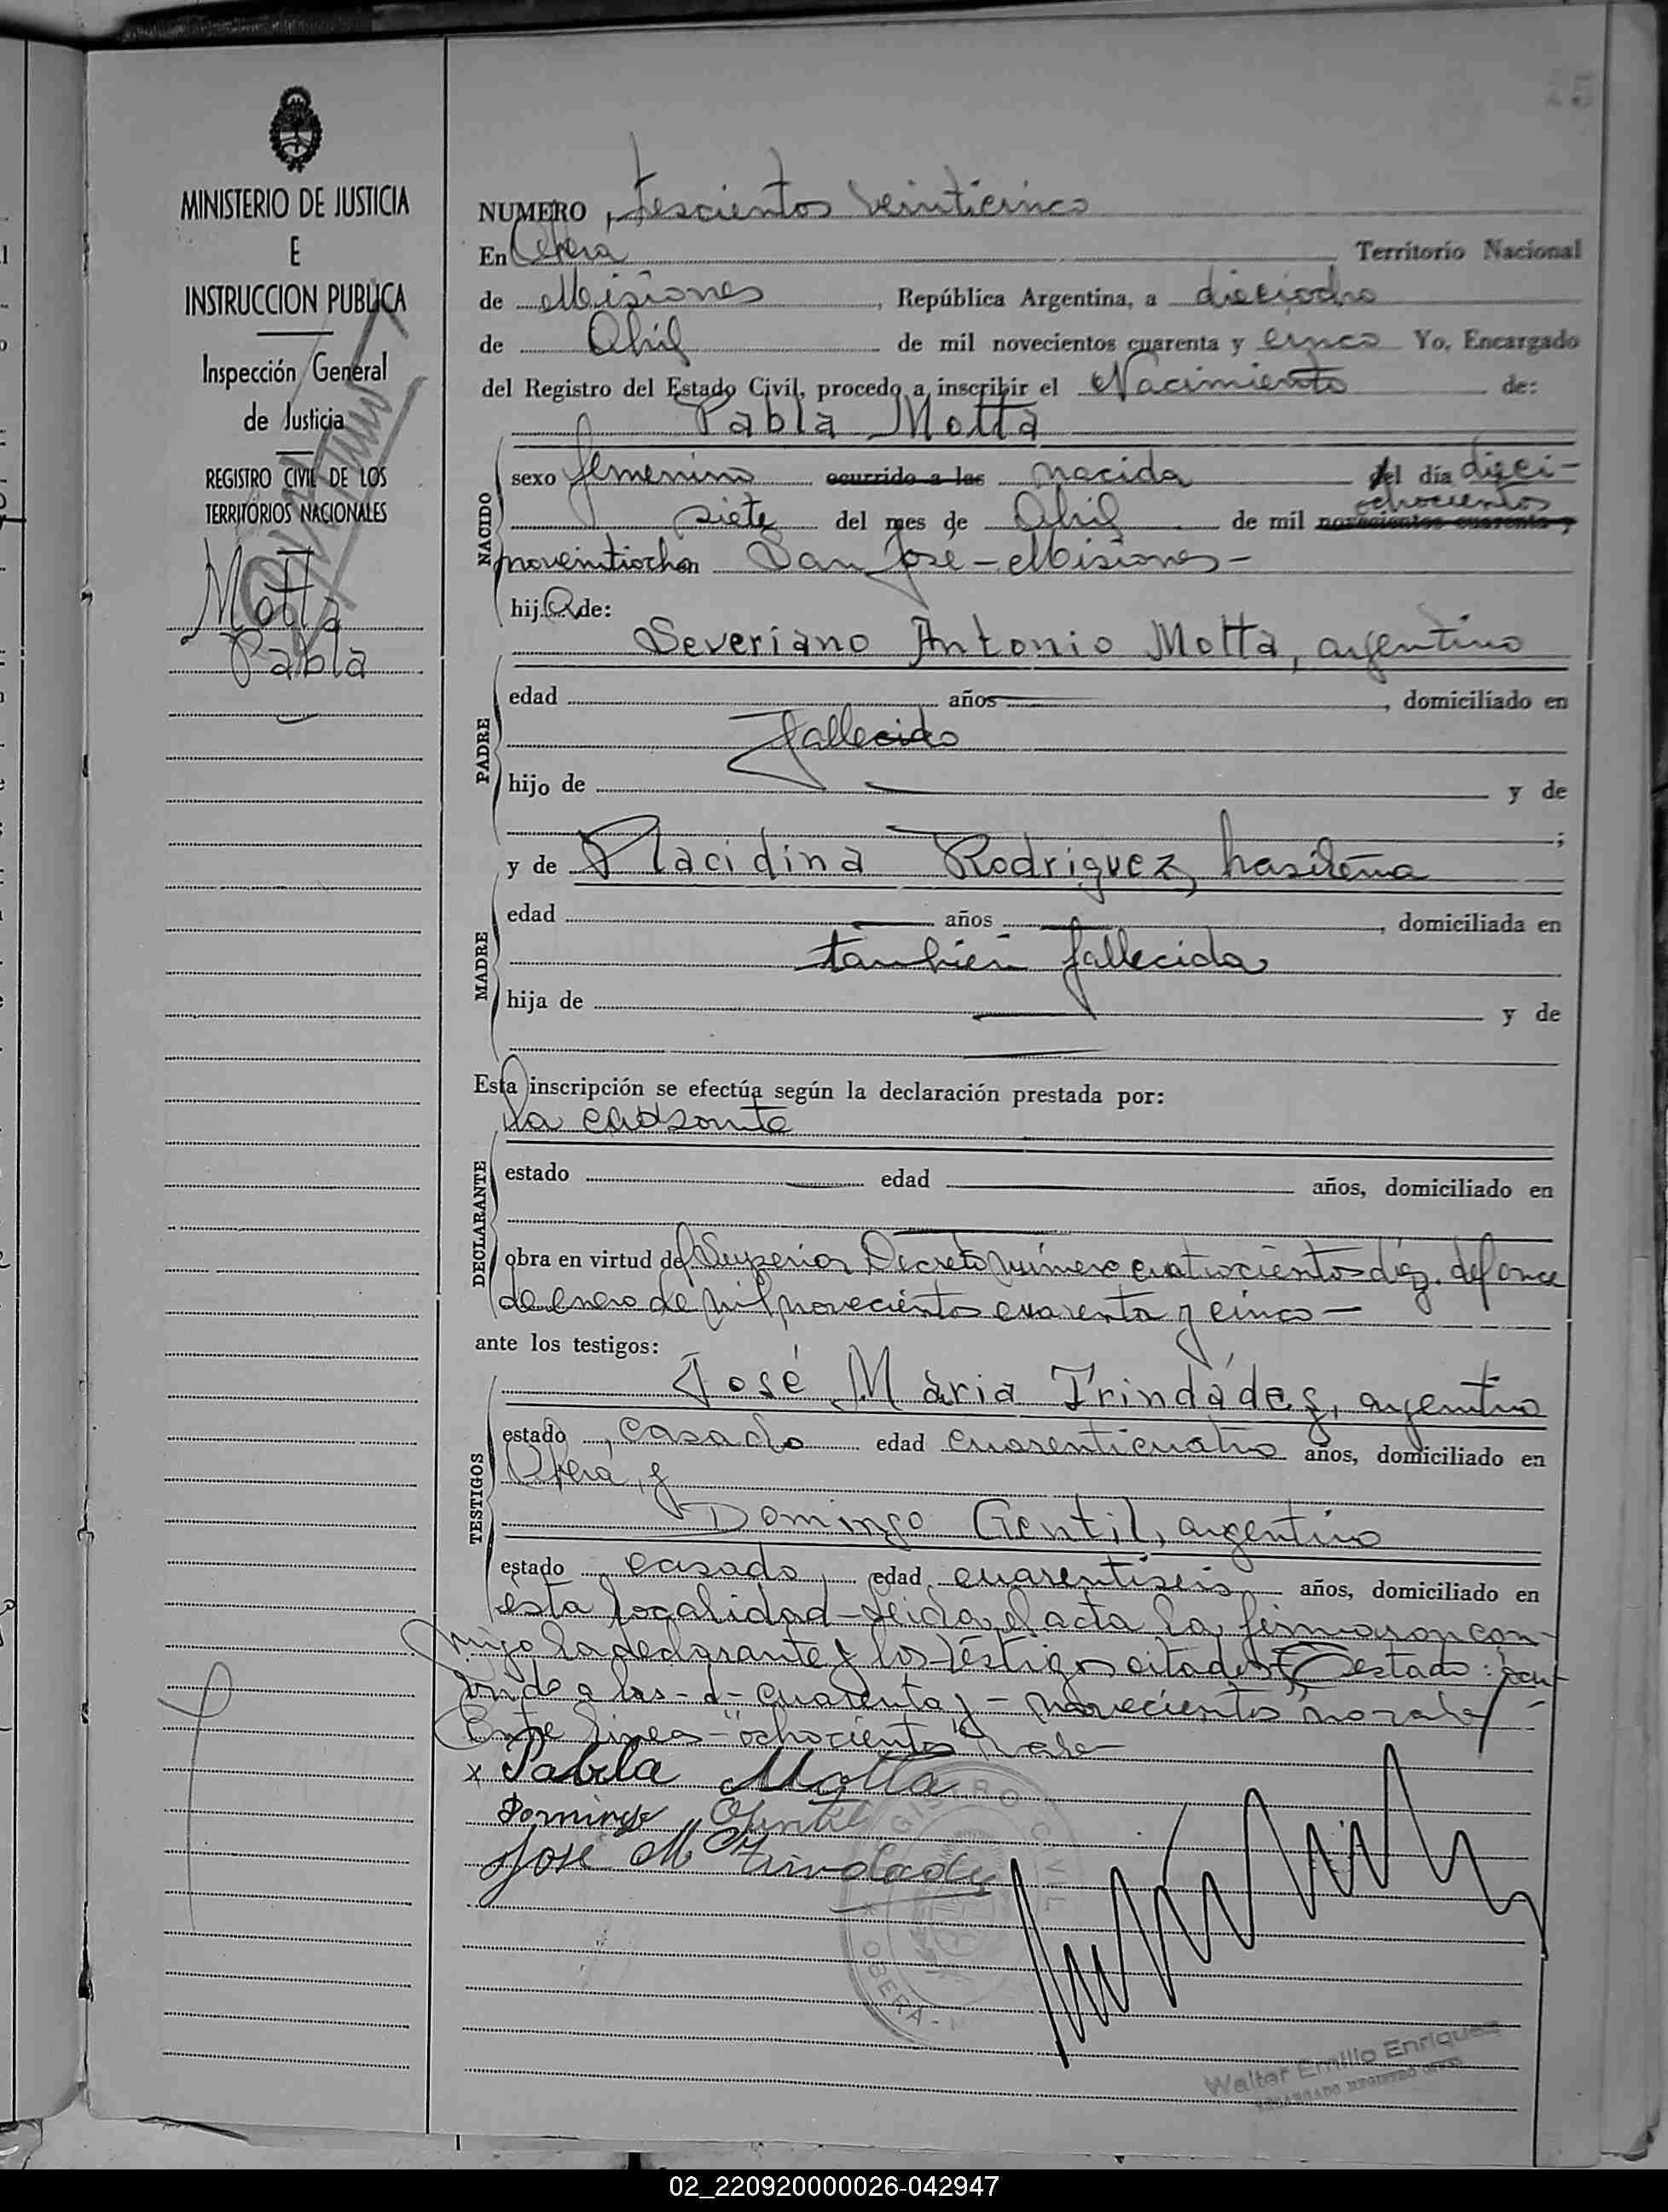 25
MINISTERIO DE JUSTICIA
E
INSTRUCCION PUBLICA
Inspección General
de Justicia
REGISTRO CIVIL DE LOS
TERRITORIOS NACIONALES
Motta
Pabla
NUMERO Trescientos veinticinco
En Oberá Territorio Nacional
de Misiones, República Argentina, a dieciocho
de Abril de mil novecientos cuarenta y cinco Yo, Encargado
del Registro del Estado Civil, procedo a inscribir el Nacimiento de:
Pabla Motta
NACIDO
sexo femenino ocurrido a las nacida del día dieci-
ochocientos
siete del mes de Abril de mil novecientos cuarenta y
noventiocho San José - Misiones -
hija de:
PADRE
Severiano Antonio Motta, argentino
edad años, domiciliado en
fallecido
hijo de y de
;
MADRE
y de Placidina Rodriguez, brasileña
edad años, domiciliada en
también fallecida
hija de y de
Esta inscripción se efectúa según la declaración prestada por:
DECLARANTE
la causante
estado edad años, domiciliado en
obra en virtud del Superior Decreto número cuatrocientos diez del once
de enero de mil novecientos cuarenta y cinco -
ante los testigos:
TESTIGOS
José Maria Trindádez, argentino
estado casado edad cuarenticuatro años, domiciliado en
Oberá, y
Domingo Gentil, argentino
estado casado, edad cuarentiseis años, domiciliado en
ésta localidad - Leida el acta la firmaron con-
migo la declarante y los testigos citados. Testado: "ocu-
rrido a las - d - cuarenta y - novecientos" no vale -
Entre lineas - "ochocientos" vale -
x Pabla Motta
Domingo Gentil
José M Trindadez
REGISTRO CIVIL
OBERA - M
Walter Emilio Enriquez
ENCARGADO REGISTRO CIVIL
02_220920000026-042947